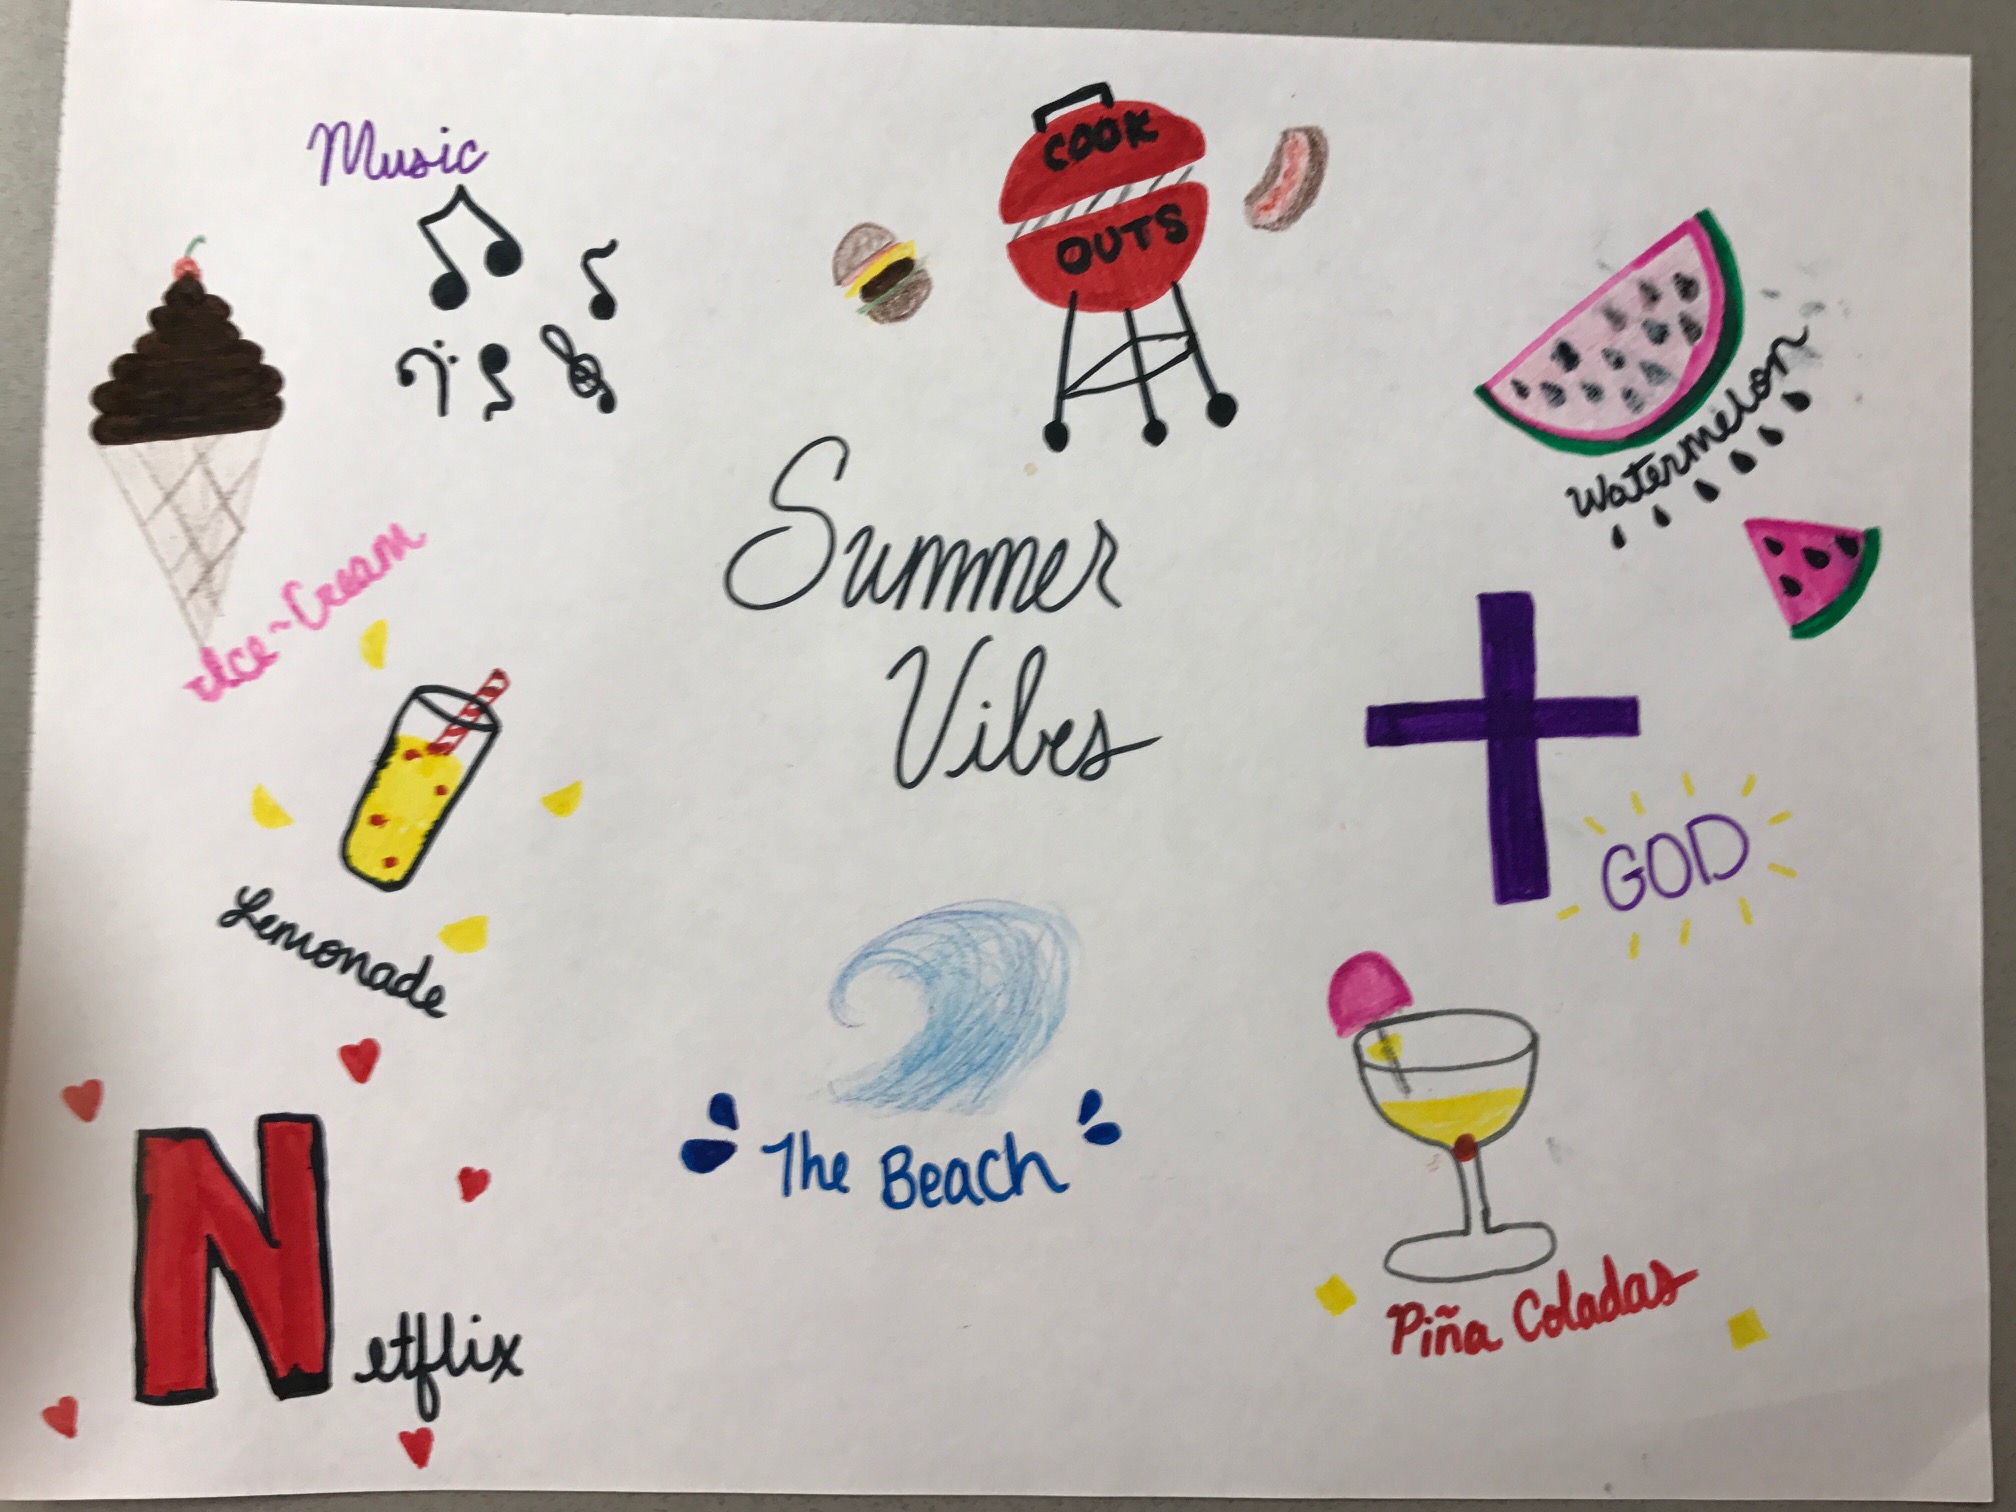 Music
COOK
OUTS
Watermelon
Ice-Cream
Summer
Vibes
GOD
Lemonade
The Beach
Netflix
Piña Coladas